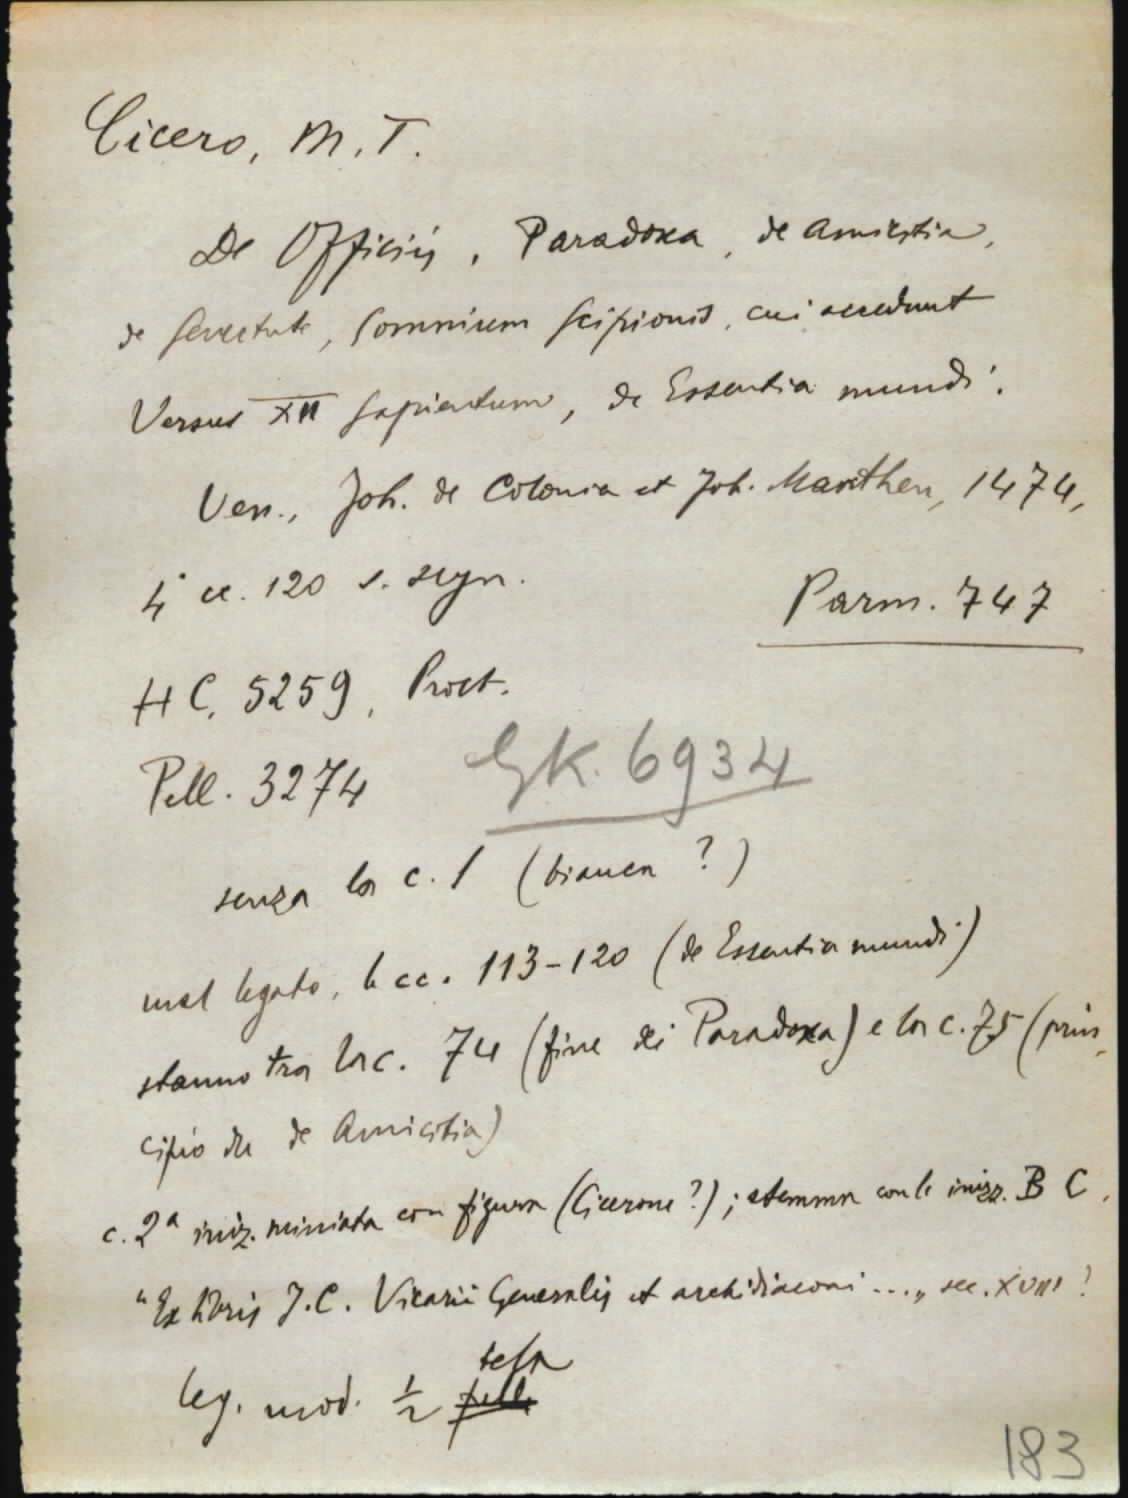 Cicero, M. T.
De Officiis, Paradoxa, de Amicitia,
de Senectute, Somnium Scipionis, cui accedunt
Versus XII Sapientum, de Essentia mundi.
Ven., Joh. de Colonia et Joh. Manthen, 1474,
4° cc. 120 s. segn.
Parm. 747
HC. 5259, Proct.
Pell. 3274
GK. 6934
senza la c. 1 (bianca ?)
mal legato, le cc. 113-120 (de Essentia mundi)
stanno tra la c. 74 (fine dei Paradoxa) e la c. 75 (prin-
cipio del de Amicitia)
c. 2ª iniz. miniata con figura (Cicerone?); stemma con le inizz. B C.
"Ex libris J. C. Vicarii Generalis et archidiaconi ...„ sec. XVIII ?
tela
leg. mod. ½ pelle
183